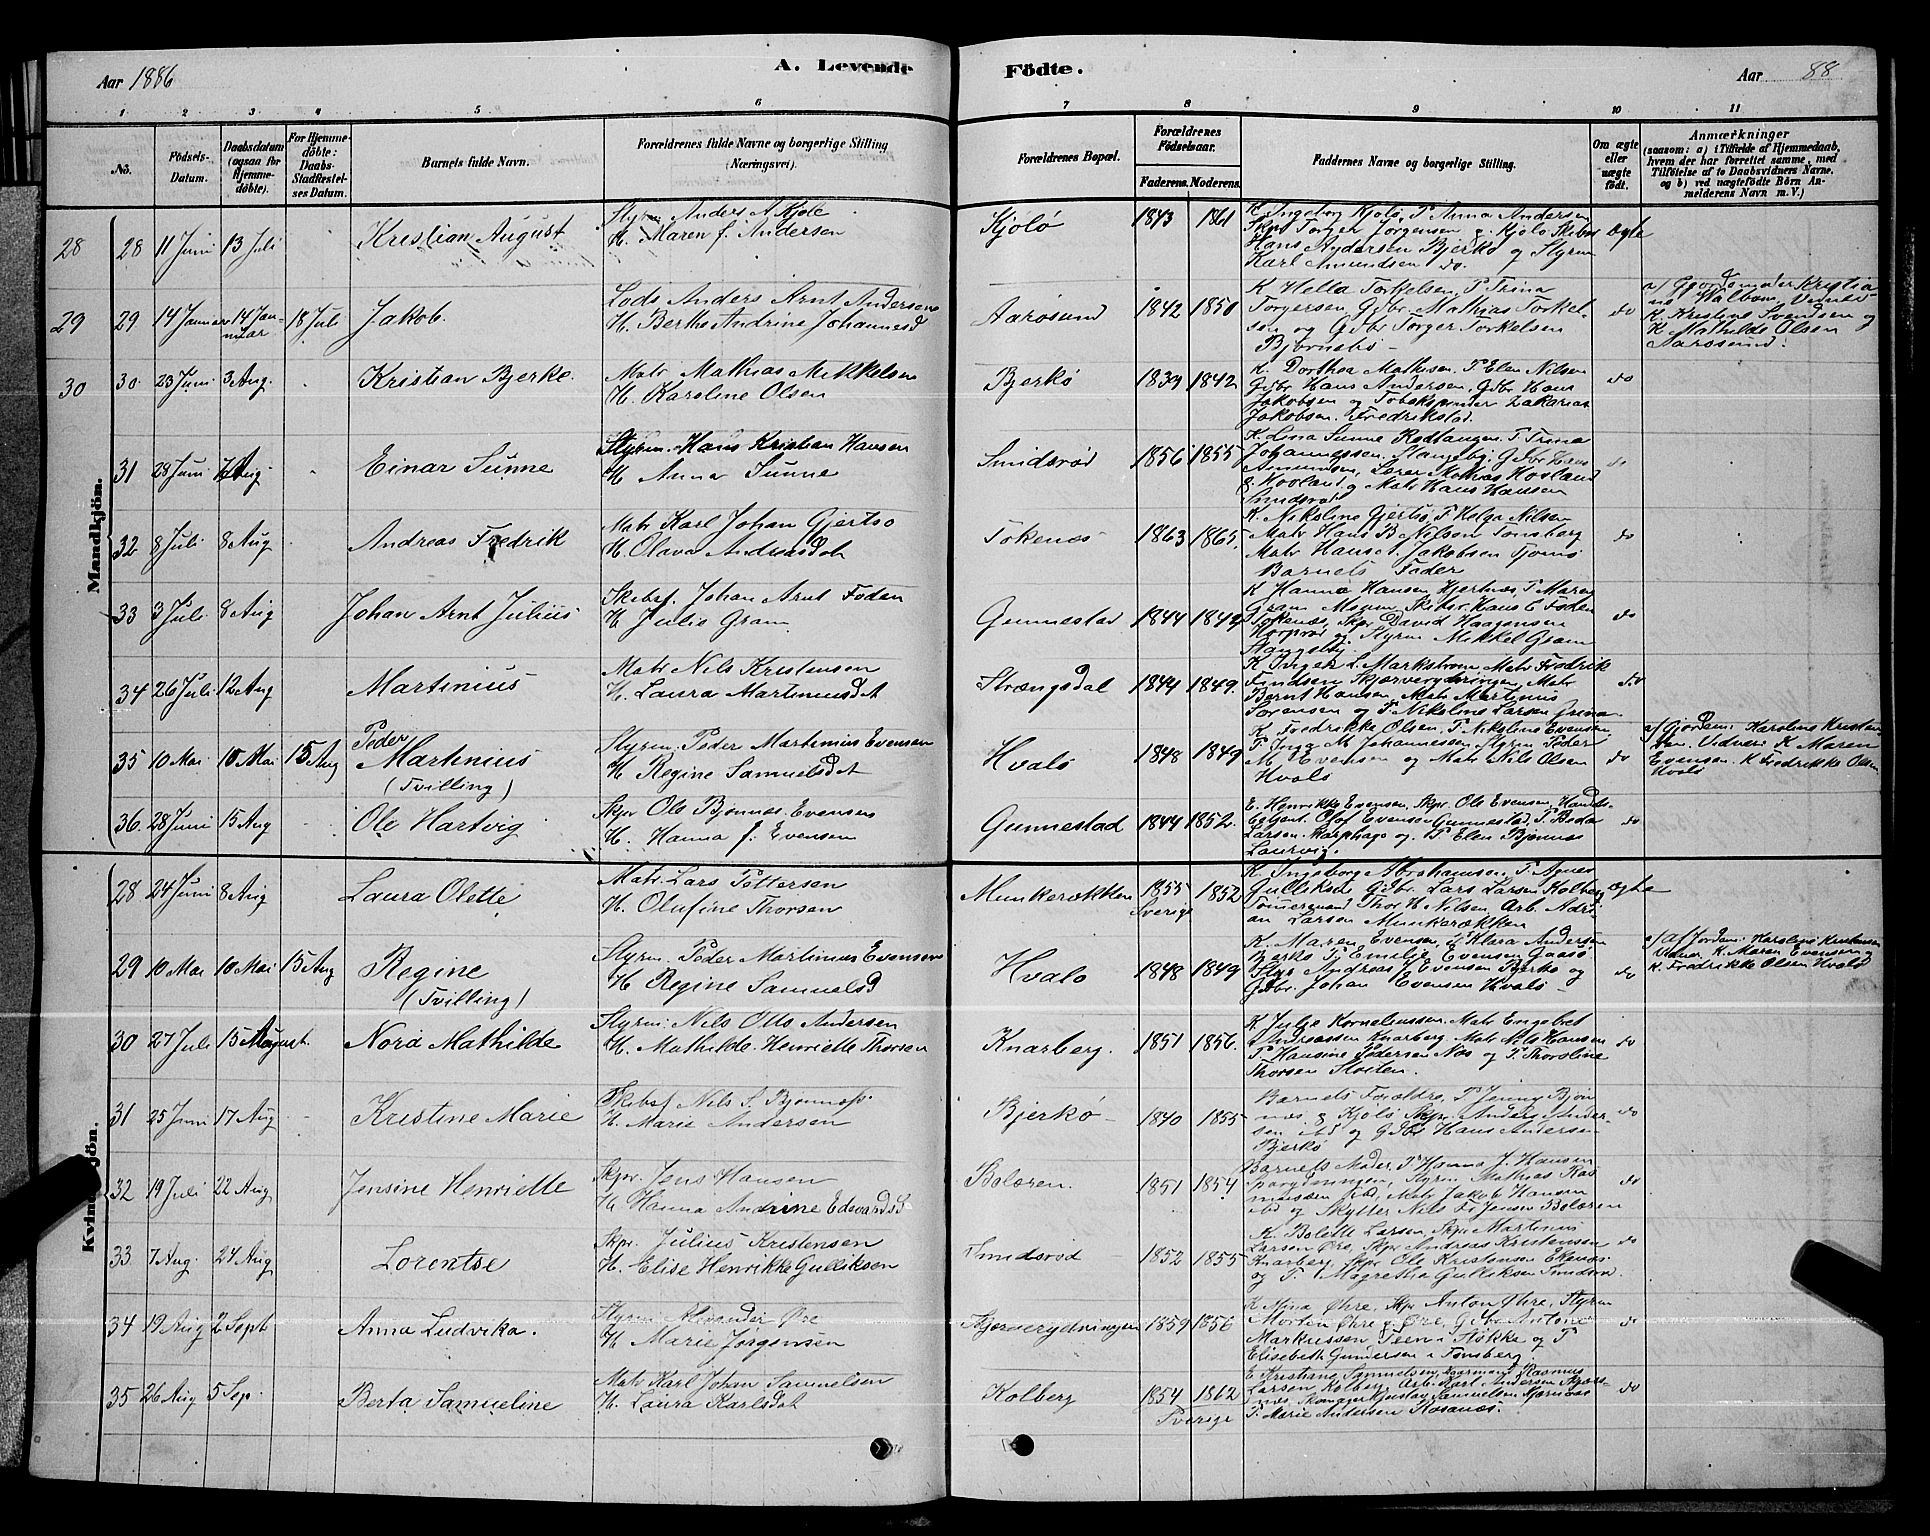 Aar 1886
A. Levende Födte.
Aar 88
1 2 3 4 5 6 7 8 9 10 11
No. Födsels-Datum. Daabsdatum (ogsaa for Hjemme-döbte). For Hjemme-döbte: Daabs-Stadfestel-ses Datum. Barnets fulde Navn. Forældrenes fulde Navne og borgerlige Stilling (Næringsvei).
Forældrenes Bopæl. Forældrenes Födselsaar. Faderens. Moderens. Faddernes Navne og borgerlige Stilling. Om ægte eller uægte födt.
Anmærkninger (saasom: a) i Tilfælde af Hjemmedaab, hvem der har forrettet samme, med Tilföielse af to Daabsvidners Navne, og b) ved uægtefödte Börn An-melderens Navn m. V.)
Mandkjön.
28 28 11 Juni 13 Juli Kristian August
Styrm Anders A Kjøle
H. Maren f. Andersen
Kjølø 1843 1861
K Ingeborg Kjølø, P Anna Andersen
Skpr Torger Jørgensen g. Kjølø Skibsr
Hans Andersen Bjerkø og Styrm
Karl Amundsen do.
ægte
29 29 14 Januar 14 Januar 18 Juli Jakob.
Lods Anders Arnt Andersen
H. Berthe Andrine Johannesd
Aarøsund 1842 1850
K Hella Torkelsen, P Trina
Torgersen Gdbr Mathias Torkel-
sen og Gdbr Torger Torkelsen
Bjørnebo
do
a) Gjordemoder Kristia
ne Valbom. Vidner
K. Kristine Svendsen og
K Mathilde Olsen
Aarøsund.
30 30. 23 Juni 3 Aug. Kristian Bjerke.
Matr Mathias Mikkelsen
H. Karoline Olsen
Bjerkø 1839 1842
K. Dorthea Mathisen. P Elen Nilsen
Gdbr Hans Andersen, Gdbr Hans
Jakobsen og Tobakspinder Zakarias
Jakobsen. Fredrikstad.
do
31 28 Juni Aug. Einar Sunne
Styrm. Hans Kristian Hansen
H Anna Sunne
Smidsrød 1856 1855
K. Lina Sunne Rødtangen. P Trine
Johannessen. Stangeby. Gdbr Hans
Amundsen, Lærer Mathias Hovland
g. Hovland og Matr Hans Hansen
Smidsrød
do
32 8 Juli 8 Aug Andreas Fredrik
Matr Karl Johan Gjertsø
H. Olava Andreasdat
Tokenæs 1863 1865.
K. Nikoline Gjertsø, P Helga Nilsen
Matr Hans B Nilsen Tønsberg
Matr Hans A. Jakobsen Tjømø
Barnets Fader
do
33 3 Juli 8 Aug Johan Arnt Julius
Skibsf. Johan Arnt Foden
H Julie Gram.
Gunnestad 1844 1849
K Hanna Hansen Hjertnæs P Maren
Gram Moum Skibsr Hans E Foden
Tokenæs, Skpr David Haagensen
Horperød og Styrm Mikkel Gram
Stangeby.
do
34 26 Juli 12 Aug Martinius
Matr Nils Kristensen
H. Laura Martinusdat
Strængsdal 1844 1849.
K Inger L Markstrøm Matr Fredrik
Findsen Skjærverydningen, Matr
Bernt Hansen, Matr Martinus
Sørensen og P Nikoline Larsen Grima.
do
35 10 Mai 10 Mai 15 Aug Peder Martinius (Tvilling)
Styrm. Peder Martinius Evensen
H Regine Samuelsdat
Hvalø 1848 1849
K. Fredrikke Olsen, P Nikoline Evensen
P Inga M Johannessen Styrm Peder
M Evensen og Matr Nils Olsen
Hvalø
do
a) Gjordem: Karoline Kristen
sen. Vidner K Maren
Evensen. K Fredrikke Olsen
Hvalø
36. 28 Juni 15 Aug Ole Hartvig
Skpr Ole Bjønnæs Evensen
H. Hanna f. Evensen
Gunnestad 1844 1852.
E. Henrikke Evensen, Skpr Ole Evensen, Handels-
betjent Olaf Evensen Gunnestad, P. Beda
Larsen Karphage og P Elen Bjønnæs
Laurvig.
do
Kvindekjön.
28 24 Juni 8 Aug Laura Olette
Matr. Lars Pettersen
H. Olufine Thorsen
Munkerækken 1855 Sverige 1852
K. Ingeborg Abrahamsen, P. Agnes
Gulliksen Gdbr. Lars Larsen Kolberg
Tømmermand Thor H Nilsen, Arb. Adri-
an Larsen Munkerækken
ægte
29 10 Mai 10 Mai 15 Aug Regine (Tvilling)
Styrm: Peder Martinius Evensen
H Regine Samuelsd
Hvalø 1848 1849
K. Maren Evensen, P Klara Andersen
Bjerkø P Emilie Evensen Gaasø
Skpr Andreas Evensen Bjerkø og
Gdbr. Johan Evensen Hvalø
do
a) af Jordem: Karoline Kristensen
Vidner K. Maren Evensen og
K. Fredrikke Olsen Hvalø
30 27 Juli 15 August. Nora Mathilde
Styrm: Nils Otto Andersen
H. Mathilde Henriette Thorsen
Knarberg. 1851 1856.
K Julie Korneliussen. Matr Engebret
Andreassen Knarberg Matr Nils Hansen
P Hansine Pedersen Næs og P. Thoroline
Thorsen Holten.
do
31 25 Juni 17 Aug Kristine Marie
Skibsf Nils S. Bjønnæs
H. Marie Andersen
Bjerkø 1840 1855
Barnets Forældre, P Jenny Bjøn
næs g Kjølø Skpr. Anders Ander-
sen ibd og Gdbr Hans Andersen
Bjerkø
do
32 19 Juli 22 Aug Jensine Henriette
Skpr. Jens Hansen
H. Hanna Andrine Edevardsd
Bolæren. 1851 1854
Barnets Moder, P Hanna J. Hansen
Styrm Mathias Ras
mussen ibd, Matr Jakob Hansen
ibd og Skytter Nils Fr Jensen Bolæren
do
33 7 Aug. 24 Aug Lorentse
Skpr. Julius Kristensen
H. Elise Henrikke Gulliksen
Smidsrød 1852 1855
K. Bolette Larsen, Skpr Martinius
Larsen Øre, Skpr Andreas Kristensen
Knarberg, Skpr Ole Kristensen Ekenæs
og P. Magrethe Gulliksen Smidsrød.
do
34 19 Aug 2 Sept Anna Ludvika.
Styrm Alexander Øre
H Marie Jørgensen
Skjærverydningen 1859 1856
K Mina Øhre, Skpr Anton Øhre, Styrm
Morten Øhre g. Øre, Gdbr Antone
Markussen, Teen i Støkke og P
Elisabeth Gundersen i Tønsberg
do
35 26 Aug 5 Sep. Berta Samueline
Matr Karl Johan Samuelsen
H. Laura Karlsdat
Kolberg 1854 1862 Sverige
E Kristiane Samuelsen, Rasmus
Larsen Kolberg, Arb. Karl Andersen
næs, Skomager Gustav Samuelsen
P. Marie Andersen Kosanæs.
do